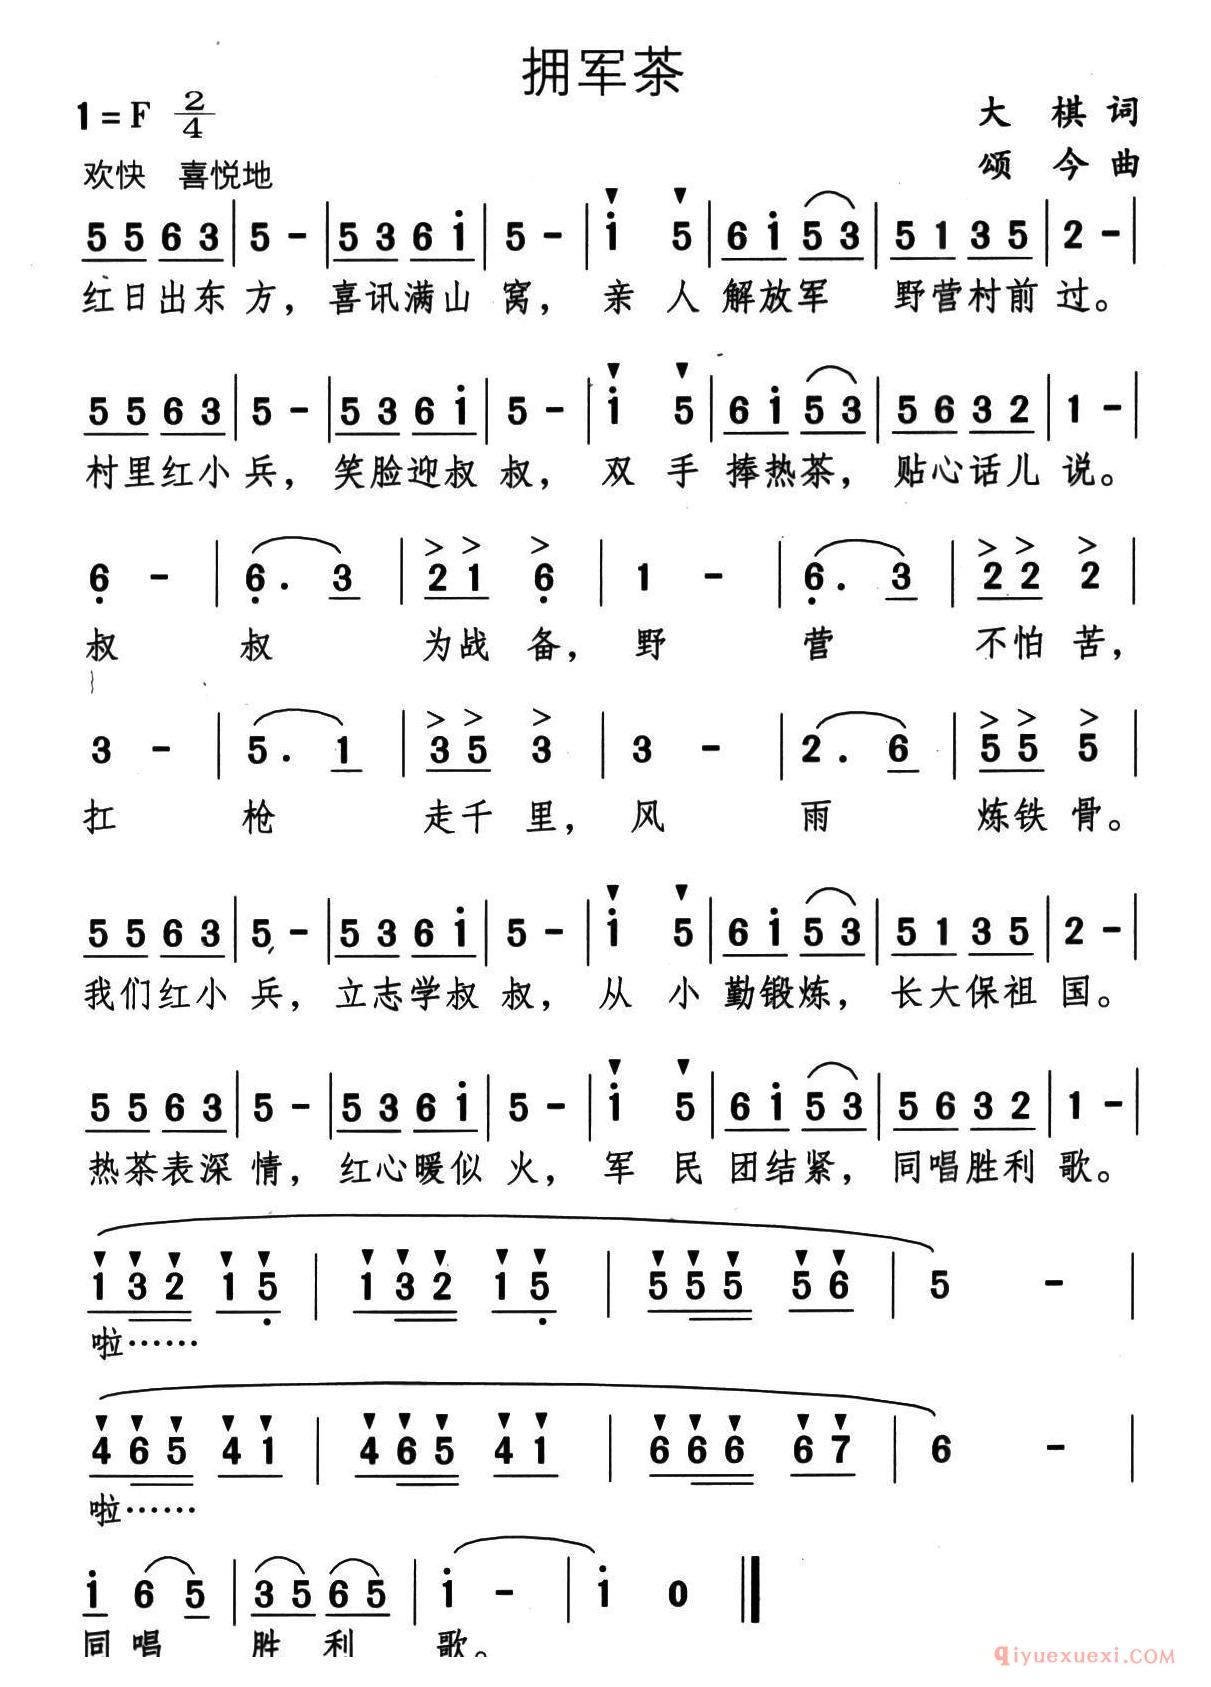 拥军茶
1=F 2/4
大 棋 词
颂 今 曲
欢快 喜悦地
5 5 6 3 | 5 - | 5 3 6 i | 5 - | i 5 | 6 i 5 3 | 5 1 3 5 | 2 - |
红日出东 方，喜讯满山 窝，亲 人 解放军 野营村前 过。
5 5 6 3 | 5 - | 5 3 6 i | 5 - | i 5 | 6 i 5 3 | 5 6 3 2 | 1 - |
村里红小 兵，笑脸迎叔 叔，双 手 捧热茶，贴心话儿 说。
6 - | 6. 3 | 2 1 6 | 1 - | 6. 3 | 2 2 2 |
叔 叔 为战 备，野 营 不怕 苦，
3 - | 5. 1 | 3 5 3 | 3 - | 2. 6 | 5 5 5 |
扛 枪 走千 里，风 雨 炼铁 骨。
5 5 6 3 | 5 - | 5 3 6 i | 5 - | i 5 | 6 i 5 3 | 5 1 3 5 | 2 - |
我们红小 兵，立志学叔 叔，从 小 勤锻炼，长大保祖 国。
5 5 6 3 | 5 - | 5 3 6 i | 5 - | i 5 | 6 i 5 3 | 5 6 3 2 | 1 - |
热茶表深 情，红心暖似 火，军 民 团结紧，同唱胜利 歌。
1 3 2 1 5 | 1 3 2 1 5 | 5 5 5 5 6 | 5 - |
啦……
4 6 5 4 1 | 4 6 5 4 1 | 6 6 6 6 7 | 6 - |
啦……
i 6 5 | 3 5 6 5 | i - | i 0 ‖
同 唱 胜 利 歌。
qiyuexuexi.COM